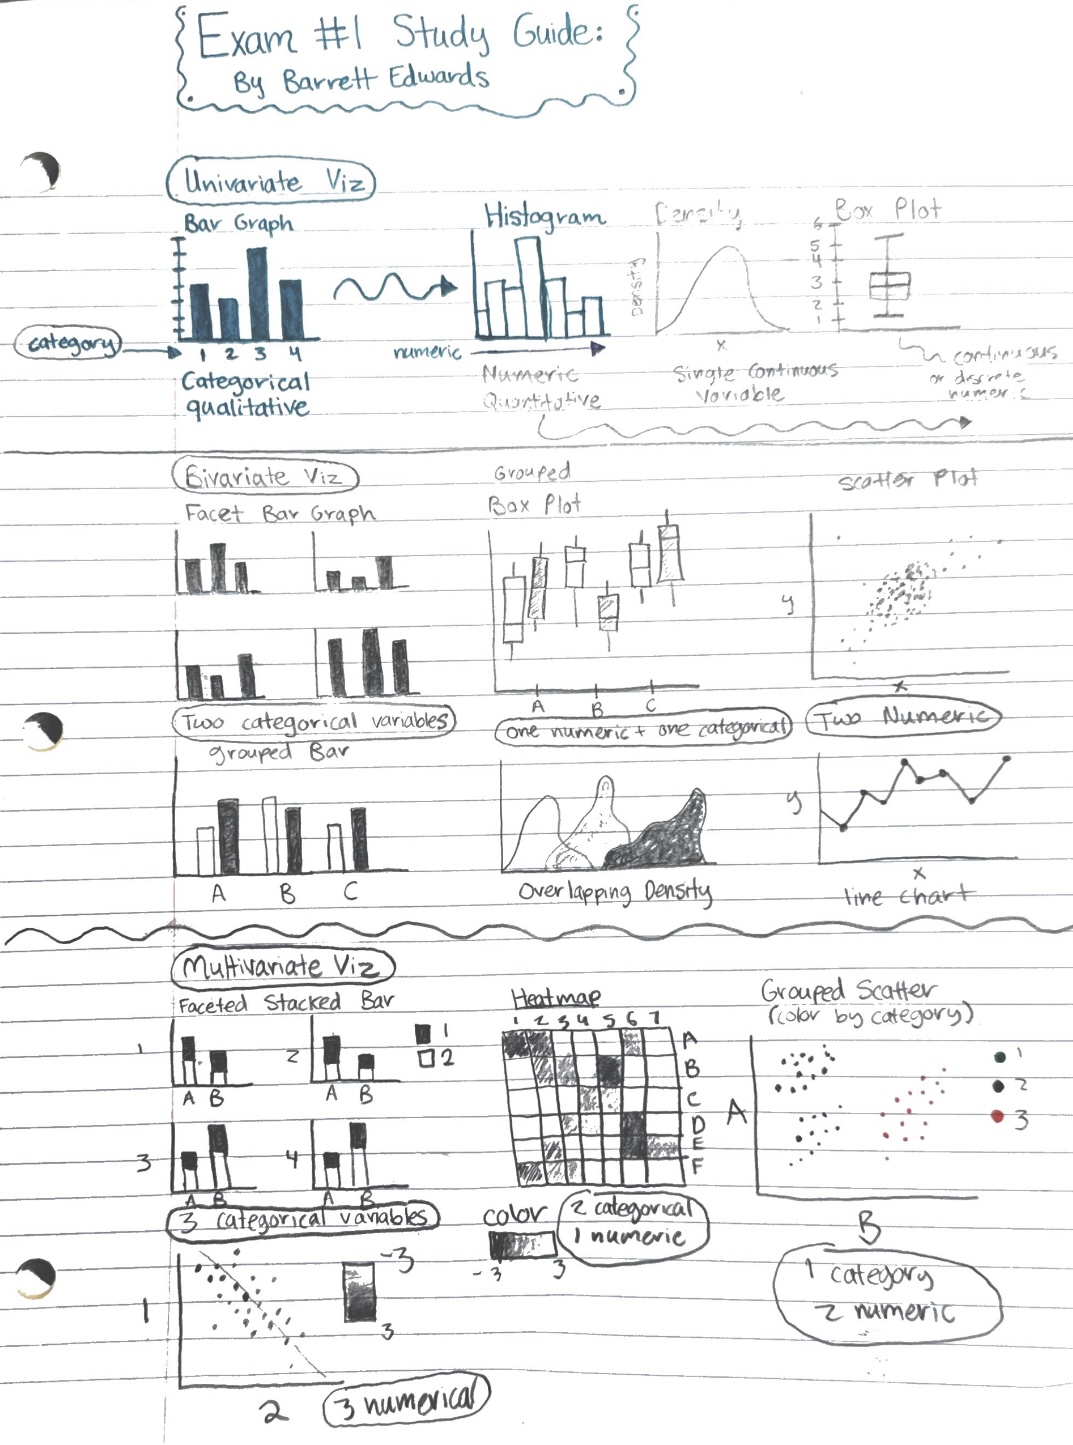 Exam #1 Study Guide:
By Barrett Edwards
Univariate Viz
Bar Graph
category
1 2 3 4
Categorical
qualitative
Histogram
numeric
Numeric
Quantitative
Density
Density
x
Single Continuous
Variable
Box Plot
6
5
4
3
2
1
continuous
or discrete
numeric
Bivariate Viz
Facet Bar Graph
Two categorical variables
grouped Bar
A B C
Grouped
Box Plot
A B C
one numeric + one categorical
Overlapping Density
Scatter Plot
y
x
Two Numeric
y
x
line chart
Multivariate Viz
Faceted Stacked Bar
1
A B
2
A B
1
2
3
A B
4
A B
3 categorical variables
Heatmap
1 2 3 4 5 6 7
A
B
C
D
E
F
color
-3 3
2 categorical
1 numeric
Grouped Scatter
(color by category)
A
B
1
2
3
1 category
2 numeric
1
2
-3
3
3 numerical